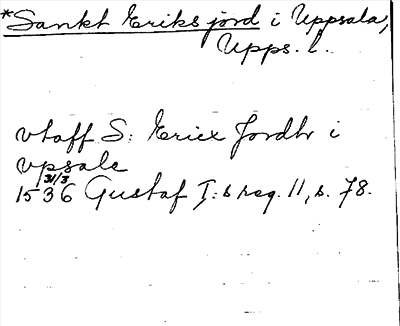 *Sankt Eriks jord i Uppsala,
Upps. l.
vtaff S: Ericx Jordh i
vpsale
31/3
1536 Gustaf I:s reg. 11, s. 78.